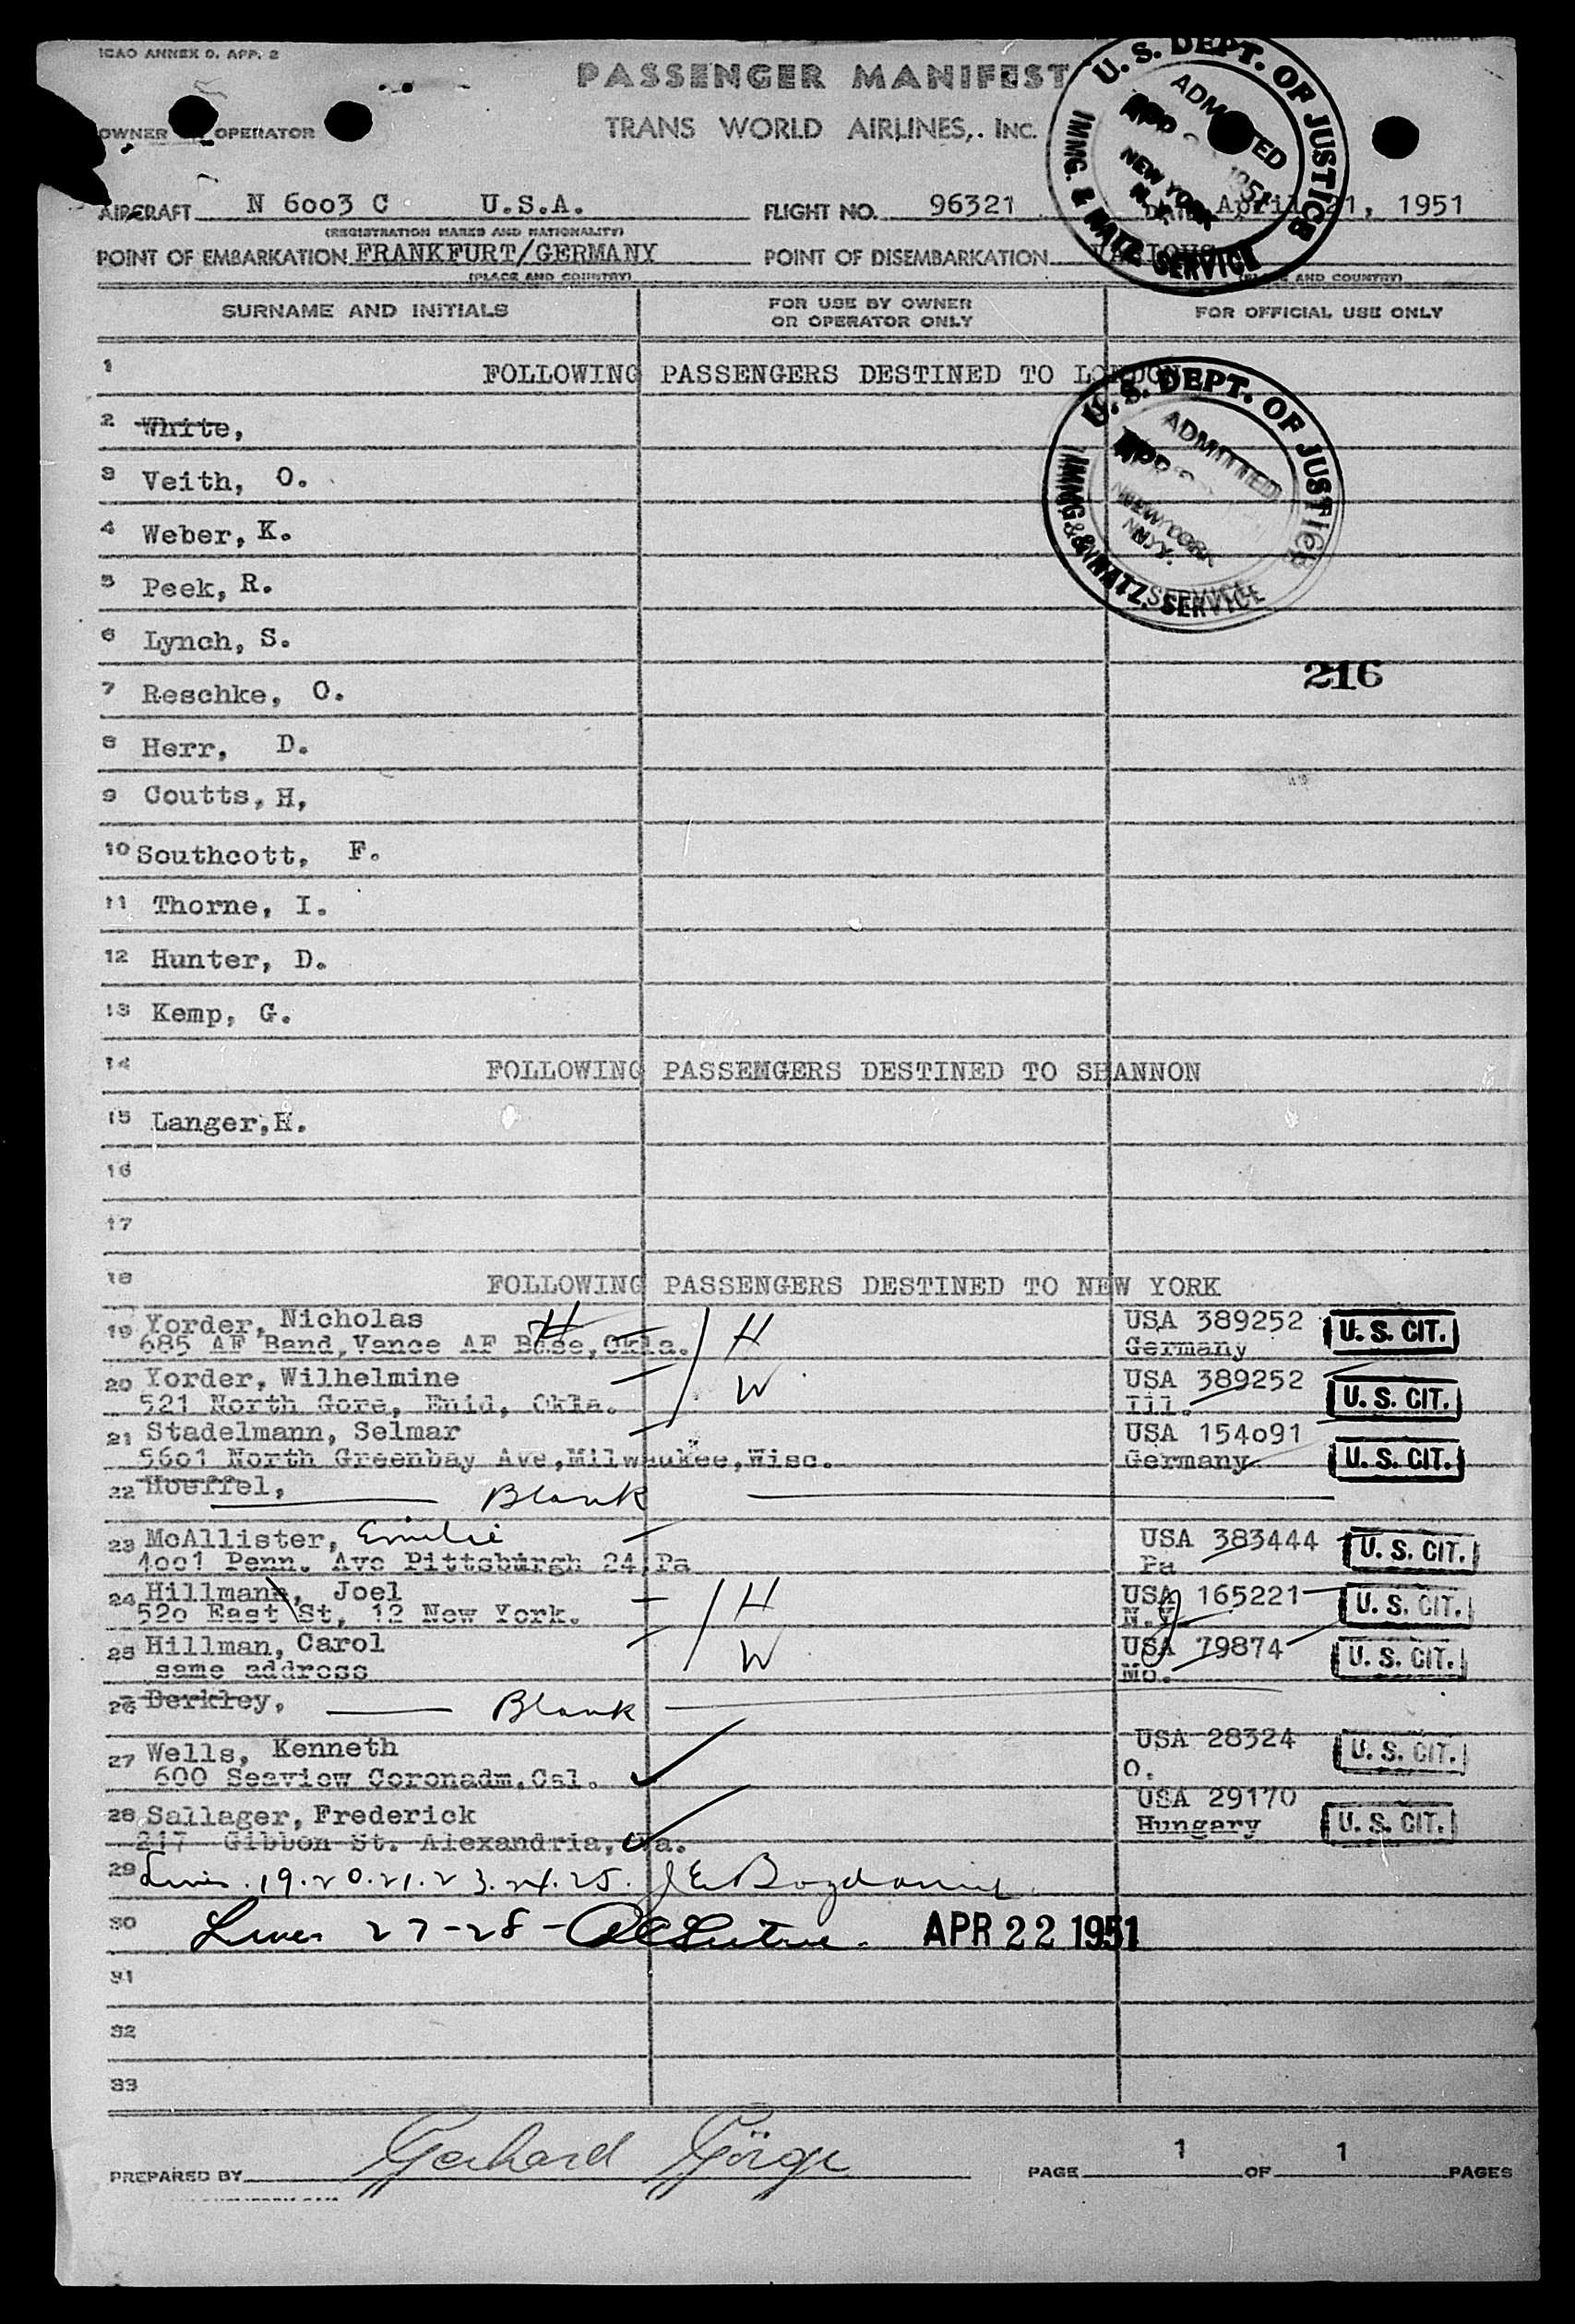 ICAO ANNEX 9, APP. 2
PASSENGER MANIFEST
OWNER OR OPERATOR TRANS WORLD AIRLINES, INC.
AIRCRAFT N 6003 C U.S.A. FLIGHT NO. 96321 DATE April 21, 1951
(REGISTRATION MARKS AND NATIONALITY)
POINT OF EMBARKATION FRANKFURT/GERMANY POINT OF DISEMBARKATION VARIOUS
(PLACE AND COUNTRY) (PLACE AND COUNTRY)
U. S. DEPT. OF JUSTICE
ADMITTED
NEW YORK
N. Y.
IMMG. & NATZ. SERVICE
SURNAME AND INITIALS FOR USE BY OWNER OR OPERATOR ONLY FOR OFFICIAL USE ONLY
1 FOLLOWING PASSENGERS DESTINED TO LONDON
U. S. DEPT. OF JUSTICE
ADMITTED
NEW YORK
N. Y.
IMMG. & NATZ. SERVICE
2 White,
3 Veith, O.
4 Weber, K.
5 Peek, R.
6 Lynch, S.
216
7 Reschke, O.
8 Herr, D.
9 Coutts, H,
10 Southcott, F.
11 Thorne, I.
12 Hunter, D.
13 Kemp, G.
14 FOLLOWING PASSENGERS DESTINED TO SHANNON
15 Langer, H.
16
17
18 FOLLOWING PASSENGERS DESTINED TO NEW YORK
19 Yorder, Nicholas H USA 389252 U. S. CIT.
685 AF Band, Vance AF Base, Okla. Germany
20 Yorder, Wilhelmine W USA 389252 U. S. CIT.
521 North Gore, Enid, Okla. Ill.
21 Stadelmann, Selmar USA 154091 U. S. CIT.
5601 North Greenbay Ave, Milwaukee, Wisc. Germany
22 Hoeffel, Blank
23 McAllister, Emilie USA 383444 U. S. CIT.
4001 Penn. Ave Pittsburgh 24, Pa Pa
24 Hillmann, Joel H USA 165221 U. S. CIT.
520 East St, 12 New York. N.Y.
25 Hillman, Carol W USA 79874 U. S. CIT.
same address Mo.
26 Berkley, Blank
27 Wells, Kenneth USA 28324 U. S. CIT.
600 Seaview Coronadm, Cal. O.
28 Sallager, Frederick USA 29170 U. S. CIT.
217 Gibbon St. Alexandria, Va. Hungary
29 Lines 19.20.21.23.24.25.
30 Lines 27-28 - APR 22 1951
31
32
33
PREPARED BY Gerhard Görge PAGE 1 OF 1 PAGES